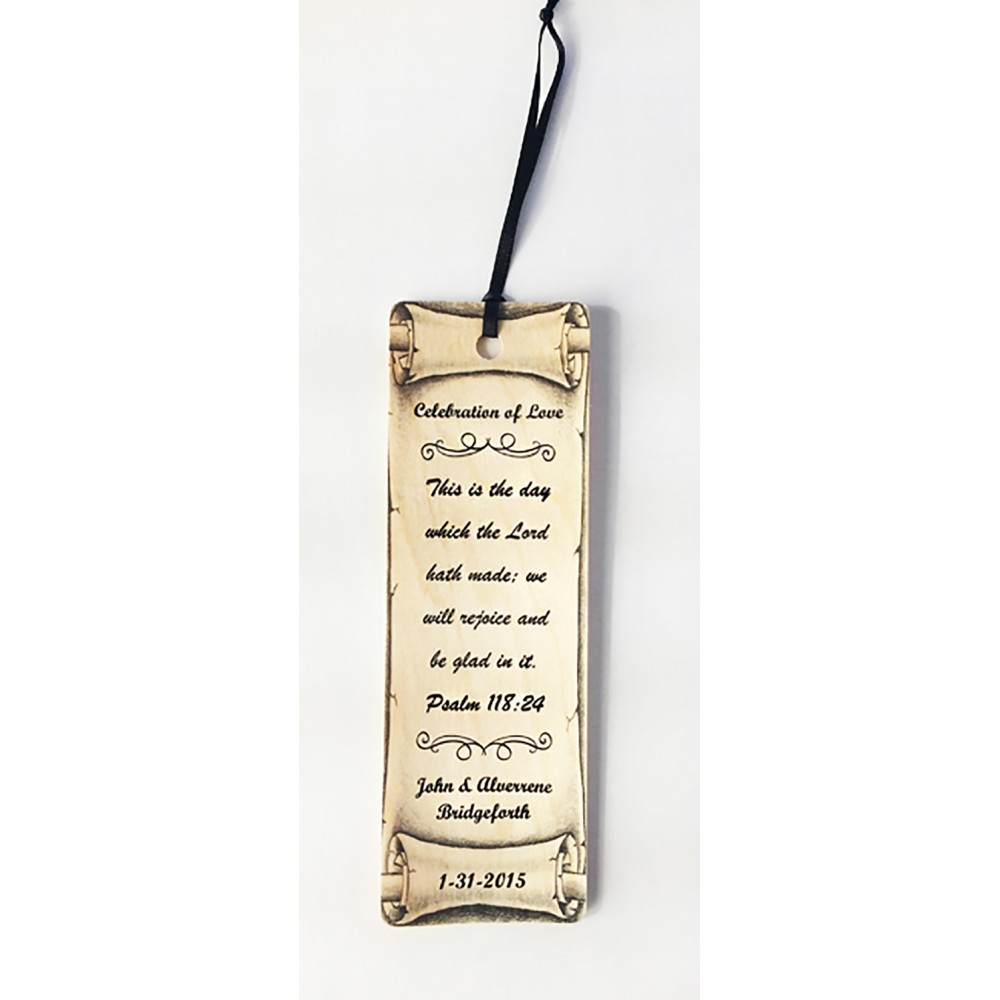 Celebration of Love
This is the day
which the Lord
hath made; we
will rejoice and
be glad in it.
Psalm 118:24
John & Alverrene
Bridgeforth
1-31-2015